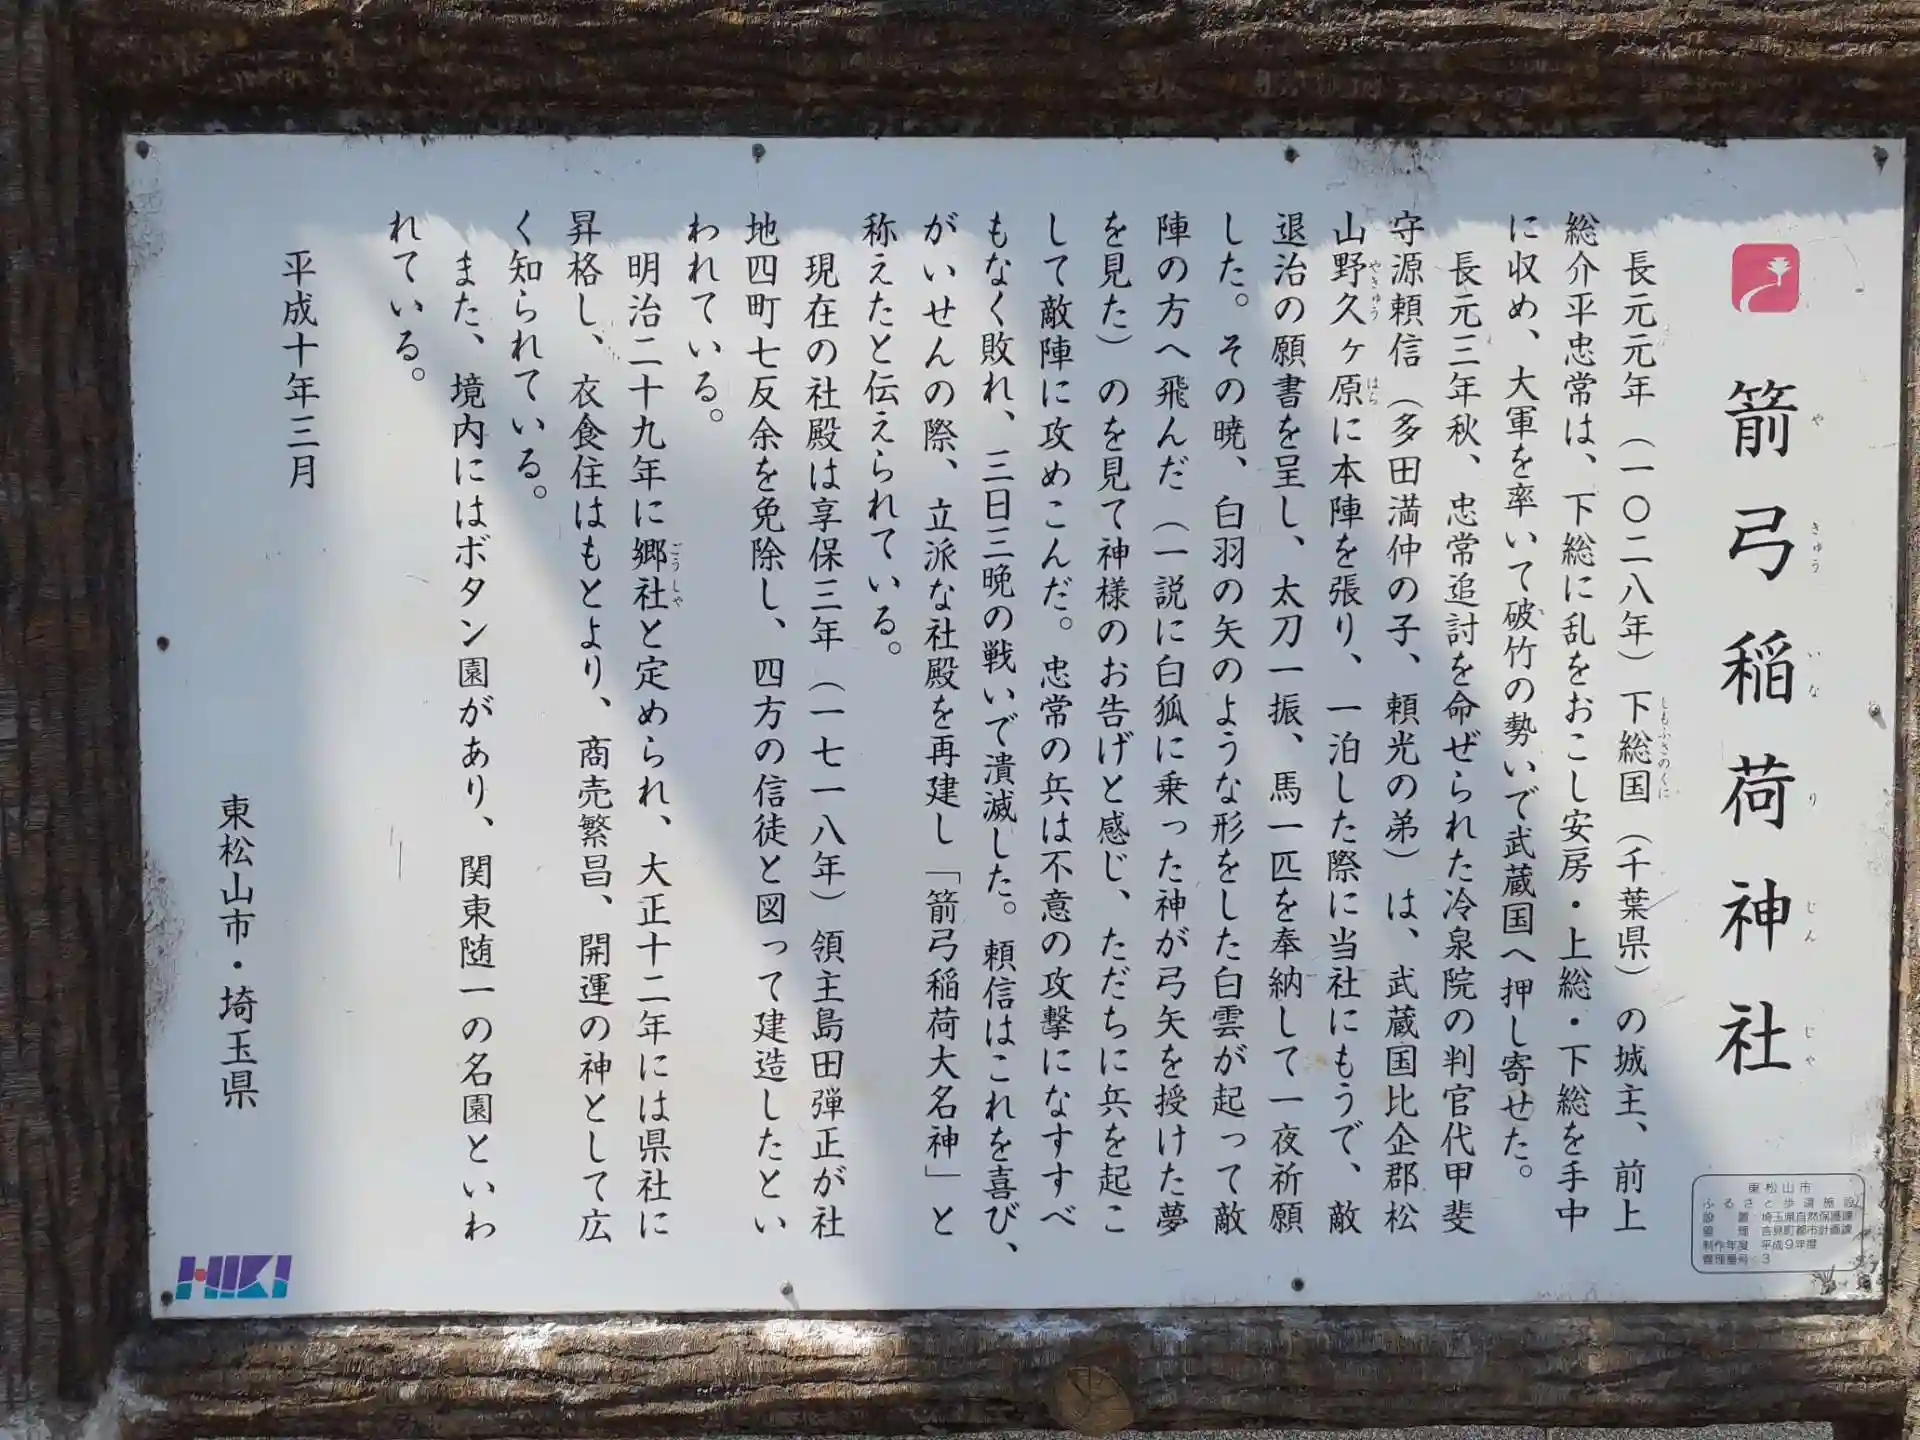 箭弓稲荷神社
や きゅう いな り じん じゃ
長元元年（一〇二八年）下総国（千葉県）の城主、前上
しもふさのくに
総介平忠常は、下総に乱をおこし安房・上総・下総を手中
に収め、大軍を率いて破竹の勢いで武蔵国へ押し寄せた。
長元三年秋、忠常追討を命ぜられた冷泉院の判官代甲斐
守源頼信（多田満仲の子、頼光の弟）は、武蔵国比企郡松
山野久ヶ原に本陣を張り、一泊した際に当社にもうで、敵
やきゅう はら
退治の願書を呈し、太刀一振、馬一匹を奉納して一夜祈願
した。その暁、白羽の矢のような形をした白雲が起って敵
陣の方へ飛んだ（一説に白狐に乗った神が弓矢を授けた夢
を見た）のを見て神様のお告げと感じ、ただちに兵を起こ
して敵陣に攻めこんだ。忠常の兵は不意の攻撃になすすべ
もなく敗れ、三日三晩の戦いで潰滅した。頼信はこれを喜び、
がいせんの際、立派な社殿を再建し「箭弓稲荷大名神」と
称えたと伝えられている。
現在の社殿は享保三年（一七一八年）領主島田弾正が社
地四町七反余を免除し、四方の信徒と図って建造したとい
われている。
明治二十九年に郷社と定められ、大正十二年には県社に
ごうしゃ
昇格し、衣食住はもとより、商売繁昌、開運の神として広
く知られている。
また、境内にはボタン園があり、関東随一の名園といわ
れている。
平成十年三月
東松山市・埼玉県
東松山市
ふるさと歩道施設
設置 埼玉県自然保護課
管理 吉見町都市計画課
制作年度 平成9年度
管理番号 3
HIKI